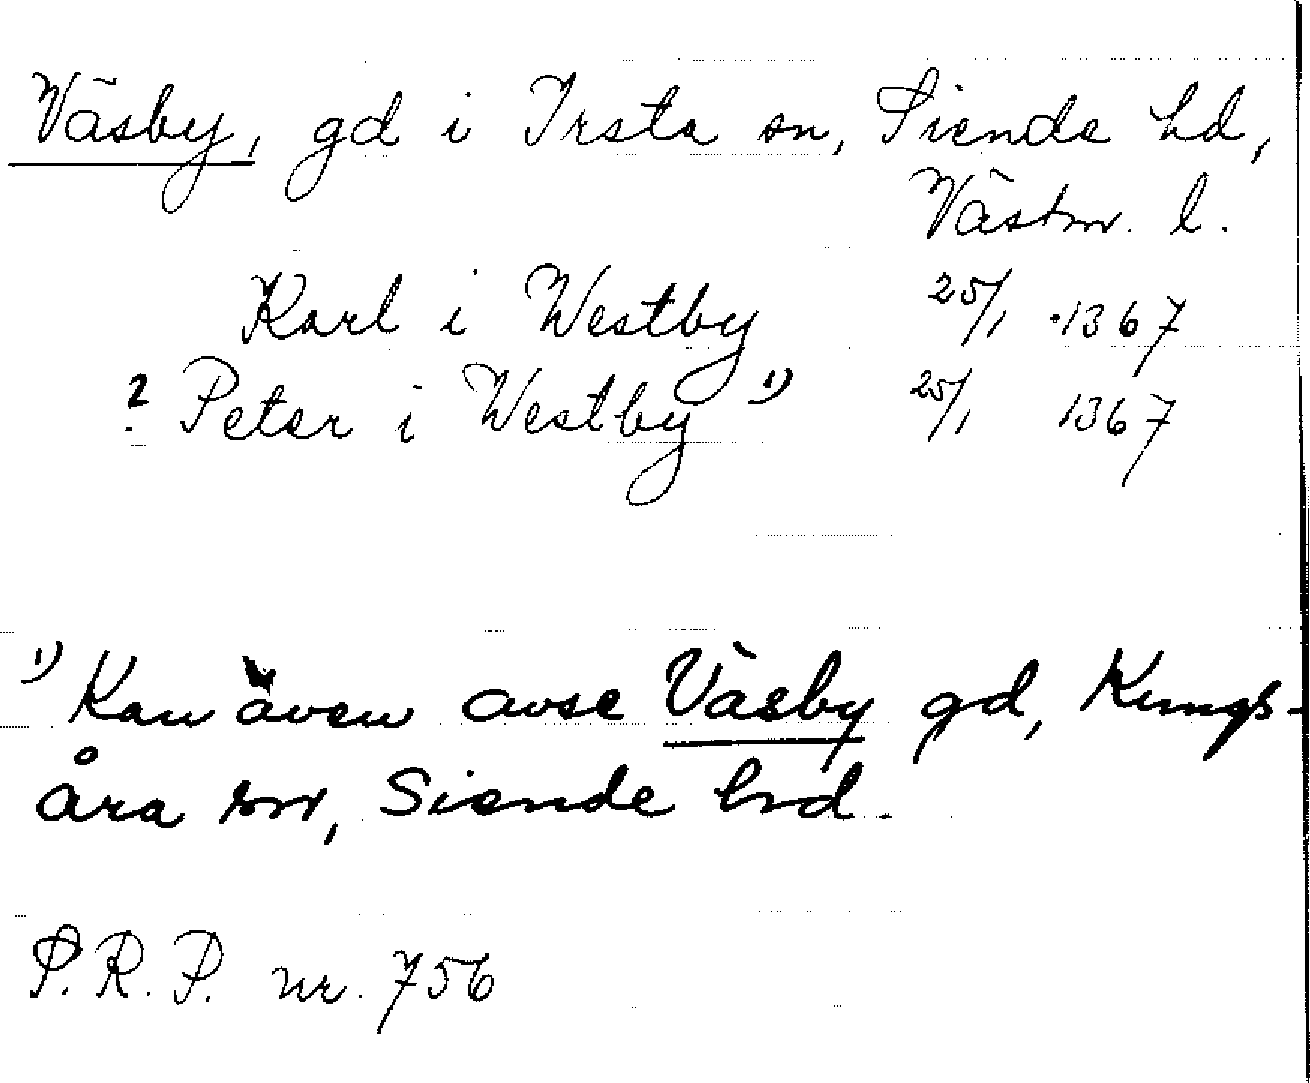 Väsby, gd i Irsta sn, Siende hd,
Västm. l.
Karl i Westby 25/1 1367
? Peter i Westby 1) 25/1 1367
1) Kan även avse Väsby gd, Kungs-
åra sn, Siende hd.
S.R.P. nr. 756